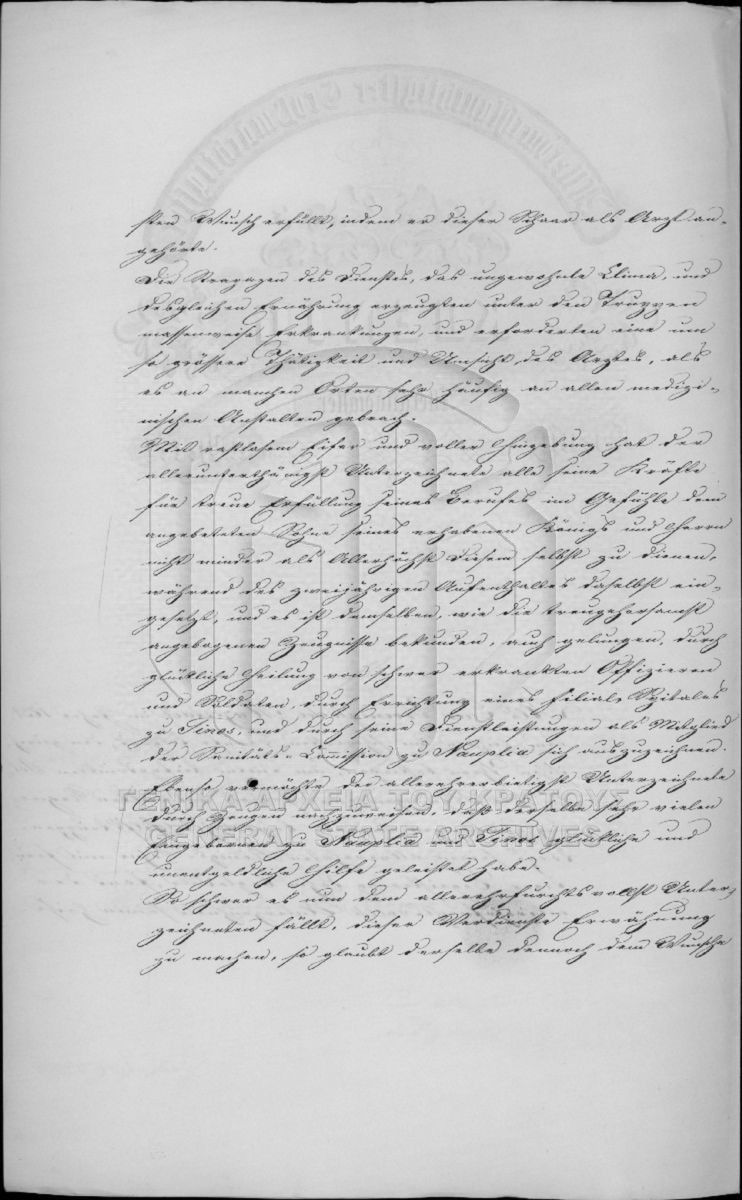 sten Wunsch erfüllt, indem er dieser Schaar als Arzt an-
gehörte.
Die Strapazen des Dienstes, das ungewohnte Clima, und
desgleichen Ernährung erzeugten unter den Truppen
massenweise Erkrankungen, und erforderten eine um
so grössere Thätigkeit und Umsicht des Arztes, als
es an manchen Orten sehr häufig an allen medizi-
nischen Anstalten gebrach.
Mit rastlosem Eifer und voller Hingebung hat der
allerunterthänigst Unterzeichnete alle seine Kräfte
für treue Erfüllung seines Berufes im Gefühle dem
angebeteten Sohne seines erhabenen Königs und Herrn
nicht minder als Allerhöchst diesem selbst zu dienen,
während des zweijährigen Aufenthaltes daselbst ein-
gesetzt, und es ist demselben, wie die treugehorsamst
angebogenen Zeugnisse bekunden, auch gelungen, durch
glückliche Heilung von schwer erkrankten Offizieren
und Soldaten, durch Errichtung eines Filial-Spitales
zu Tinos, und durch seine Dienstleistungen als Mitglied
der Sanitäts-Commission zu Nauplia sich auszuzeichnen.
Ebenso vermöchte der allerehrerbietigst Unterzeichnete
durch Zeugen nachzuweisen, daß derselbe sehr vielen
Eingebornen zu Nauplia und Tinos glückliche und
unentgeldliche Hilfe geleistet habe.
So schwer es nun dem allerehrfurchtsvollst Unter-
zeichneten fällt, dieser Verdienste Erwähnung
zu machen, so glaubt derselbe dennoch dem Wunsche
ΓΕΝΙΚΑ ΑΡΧΕΙΑ ΤΟΥ ΚΡΑΤΟΥΣ
GENERAL STATE ARCHIVES